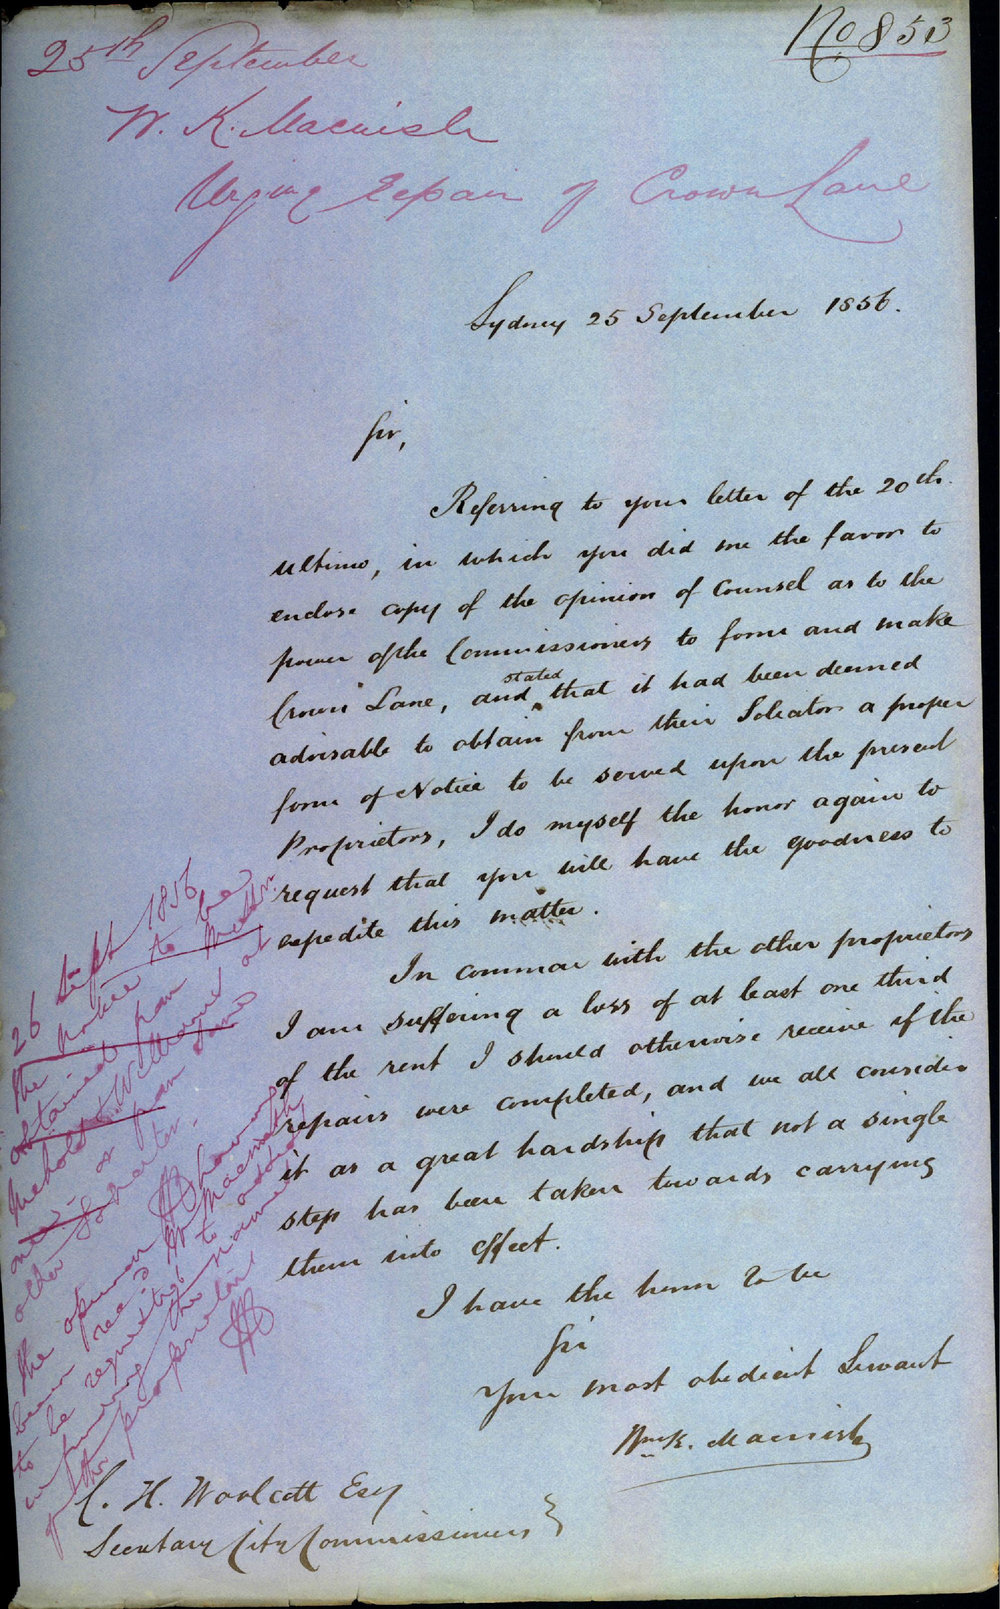 No 853
25th September
W. K. Macnish
Urging Repair of Crown Lane
Sydney 25 September 1856.
Sir,
Referring to your letter of the 20th.
ultimo, in which you did me the favor to
enclose copy of the opinion of Counsel as to the
power of the Commissioners to form and make
Crown Lane, and stated that it had been deemed
advisable to obtain from their Solicitor a proper
form of Notice to be served upon the present
Proprietors, I do myself the honor again to
request that you will have the goodness to
expedite this matter.
In common with the other proprietors
I am suffering a loss of at least one third
of the rent I should otherwise receive if the
repairs were completed, and we all consider
it as a great hardship that not a single
step has been taken towards carrying
them into effect.
I have the honor to be
Sir
Your most obedient Servant
Wm K. Macnish
C. H. Woolcott Esq
Secretary City Commissioners
26 Sept 1856
The notice to be
obtained from Messrs.
Nichols & Williams
or from
other
The opinion having
been rec'd Mr Macnish
to be requested to
in the names
of the proprietors